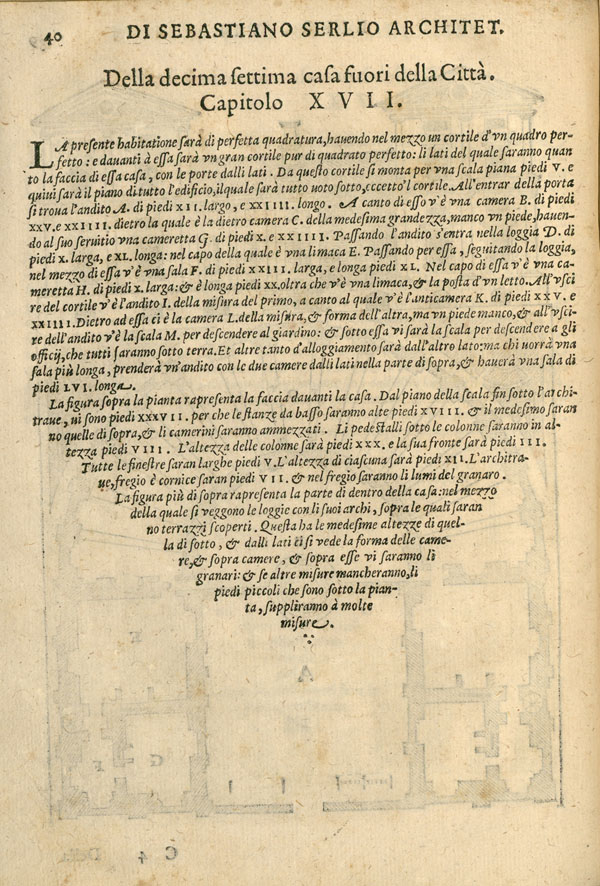 40
DI SEBASTIANO SERLIO ARCHITET.
Della decima settima casa fuori della Città.
Capitolo XVII.
LA presente habitatione sarà di perfetta quadratura, hauendo nel mezzo un cortile d'vn quadro per-
fetto: e dauanti à essa sarà vn gran cortile pur di quadrato perfetto: li lati del quale saranno quan
to la faccia di essa casa, con le porte dalli lati. Da questo cortile si monta per vna scala piana piedi V. e
quiui sarà il piano di tutto l'edificio, ilquale sarà tutto uoto sotto, eccetto'l cortile. All'entrar della porta
si troua l'andito A. di piedi XII. largo, e XXIIII. longo. A canto di esso v'è vna camera B. di piedi
XXV. e XXIIII. dietro la quale è la dietro camera C. della medesima grandezza, manco vn piede, hauen-
do al suo seruitio vna cameretta G. di piedi X. e XXIIII. Passando l'andito s'entra nella loggia D. di
piedi X. larga, e XL. longa: nel capo della quale è vna limaca E. Passando per essa, seguitando la loggia,
nel mezzo di essa v'è vna sala F. di piedi XXIII. larga, e longa piedi XL. Nel capo di essa v'è vna ca-
meretta H. di piedi X. larga: & è longa piedi XX. oltra che v'è vna limaca, & la posta d'vn letto. All'vsci
re del cortile v'è l'andito I. della misura del primo, a canto al quale v'è l'anticamera K. di piedi XXV. e
XXIIII. Dietro ad essa ci è la camera L. della misura, & forma dell'altra, ma vn piede manco, & all'vsci-
re dell'andito v'è la scala M. per descendere al giardino: & sotto essa vi sarà la scala per descendere a gli
officij, che tutti saranno sotto terra. Et altre tanto d'alloggiamento sarà dall'altro lato: ma chi uorrà vna
sala più longa, prenderà vn'andito con le due camere dalli lati nella parte di sopra, & hauerà vna sala di
piedi LVI. longa.
La figura sopra la pianta rapresenta la faccia dauanti la casa. Dal piano della scala fin sotto l'archi-
traue, ui sono piedi XXXVII. per che le stanze da basso saranno alte piedi XVIII. & il medesimo saran
no quelle di sopra, & li camerini saranno ammezzati. Li pedestalli sotto le colonne saranno in al-
tezza piedi VIII. L'altezza delle colonne sarà piedi XXX. e la sua fronte sarà piedi III.
Tutte le finestre saran larghe piedi V. L'altezza di ciascuna sarà piedi XII. L'architra-
ue, fregio è cornice saran piedi VII. & nel fregio saranno li lumi del granaro.
La figura più di sopra rapresenta la parte di dentro della casa: nel mezzo
della quale si veggono le loggie con li suoi archi, sopra le quali saran
no terrazzi scoperti. Questa ha le medesime altezze di quel-
la di sotto, & dalli lati ci si vede la forma delle came-
re, & sopra camere, & sopra esse vi saranno li
granari: & se altre misure mancheranno, li
piedi piccoli che sono sotto la pian-
ta, suppliranno à molte
misure.
A
G
F
C 4
Della